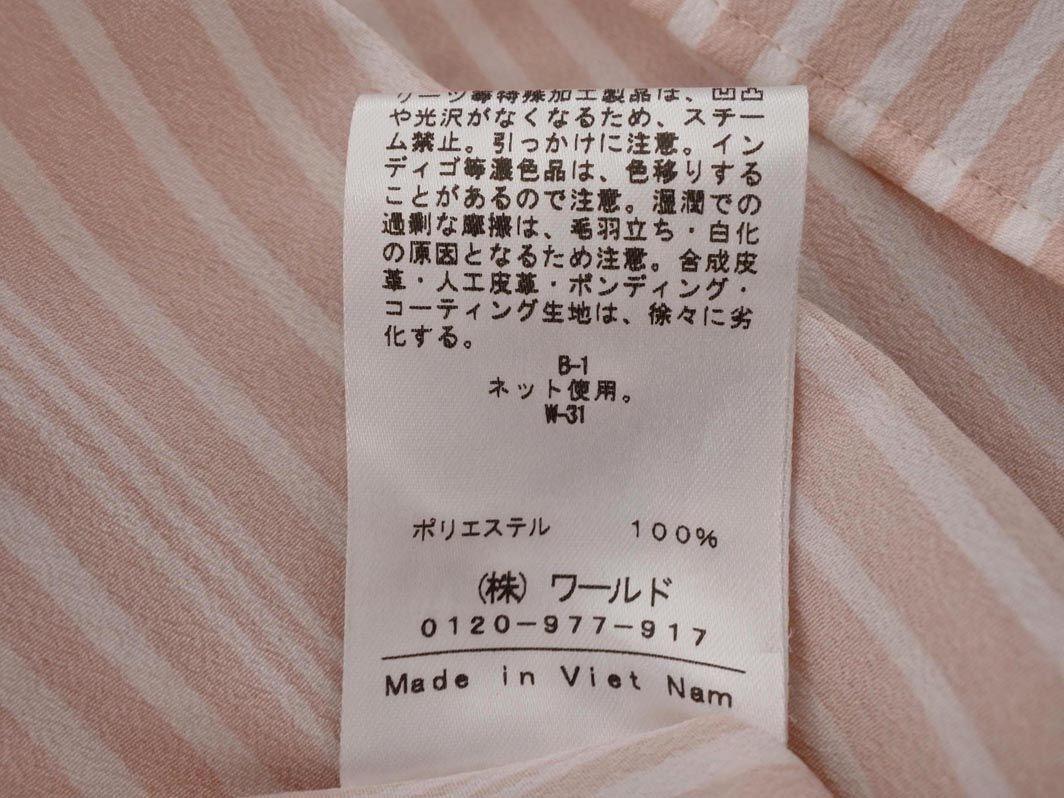 リーツ等特殊加工製品は、凹凸
や光沢がなくなるため、スチー
ム禁止。引っかけに注意。イン
ディゴ等濃色品は、色移りする
ことがあるので注意。湿潤での
過剰な摩擦は、毛羽立ち・白化
の原因となるため注意。合成皮
革・人工皮革・ボンディング・
コーティング生地は、徐々に劣
化する。
B-1
ネット使用。
W-31
ポリエステル 100%
(株) ワールド
0120-977-917
Made in Viet Nam